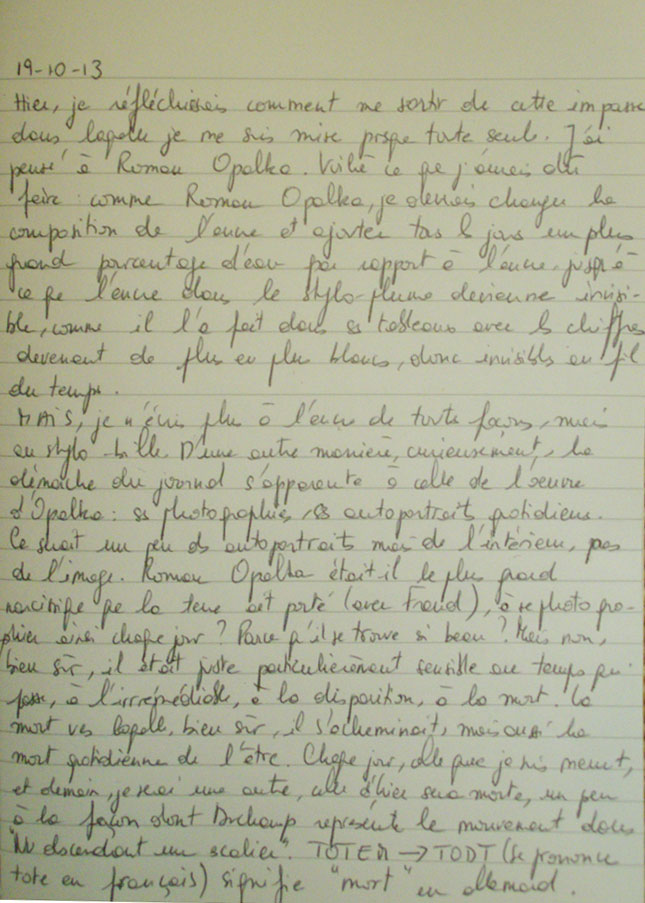 19-10-13
Hier, je réfléchissais comment me sortir de cette impasse
dans laquelle je me suis mise presque toute seule. J'ai
pensé à Roman Opalka. Voilà ce que j'aurais dû
faire : comme Roman Opalka, je devrais changer la
composition de l'encre et ajouter tous les jours un plus
grand pourcentage d'eau par rapport à l'encre, jusqu'à
ce que l'encre dans le stylo-plume devienne invisi-
ble, comme il l'a fait dans ses tableaux avec les chiffres
devenant de plus en plus blancs, donc invisibles au fil
du temps.
MAIS, je n'écris plus à l'encre de toute façon, mais
au stylo-bille. D'une autre manière, curieusement, la
démarche du journal s'apparente à celle de l'oeuvre
d'Opalka : ses photographies, ses autoportraits quotidiens.
Ce serait un peu des autoportraits mais de l'intérieur, pas
de l'image. Roman Opalka était-il le plus grand
narcissique que la terre ait porté (avec Freud), à se photogra-
phier ainsi chaque jour ? Parce qu'il se trouve si beau ? Mais non,
bien sûr, il était juste particulièrement sensible au temps qui
passe, à l'irrémédiable, à la disparition, à la mort. La
mort vers laquelle, bien sûr, il s'acheminait, mais aussi la
mort quotidienne de l'être. Chaque jour, celle que je suis meurt,
et demain, je serai une autre, celle d'hier sera morte, un peu
à la façon dont Duchamp représente le mouvement dans
"Nu descendant un escalier". TOTEM → TODT (se prononce
tote en français) signifie "mort" en allemand.